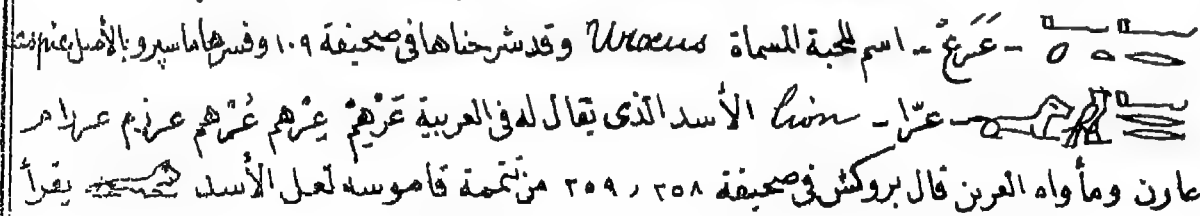 - عَرَعْ - اسم للحية المسماة Uraeus وقد شرحناها فى صحيفة ١٠٩ وفسرها ماسپرو بالأصل
- عرّا - Lion الأسد الذى يقال له فى العربية عزهم عرزم عرزام
عارن ومأواه العرين قال بروكش فى صحيفة ٢٥٨ ، ٢٥٩ من تتمة قاموسه لعل الأسد يقرأ